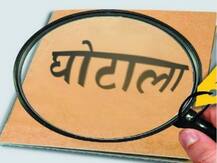 घोटाला